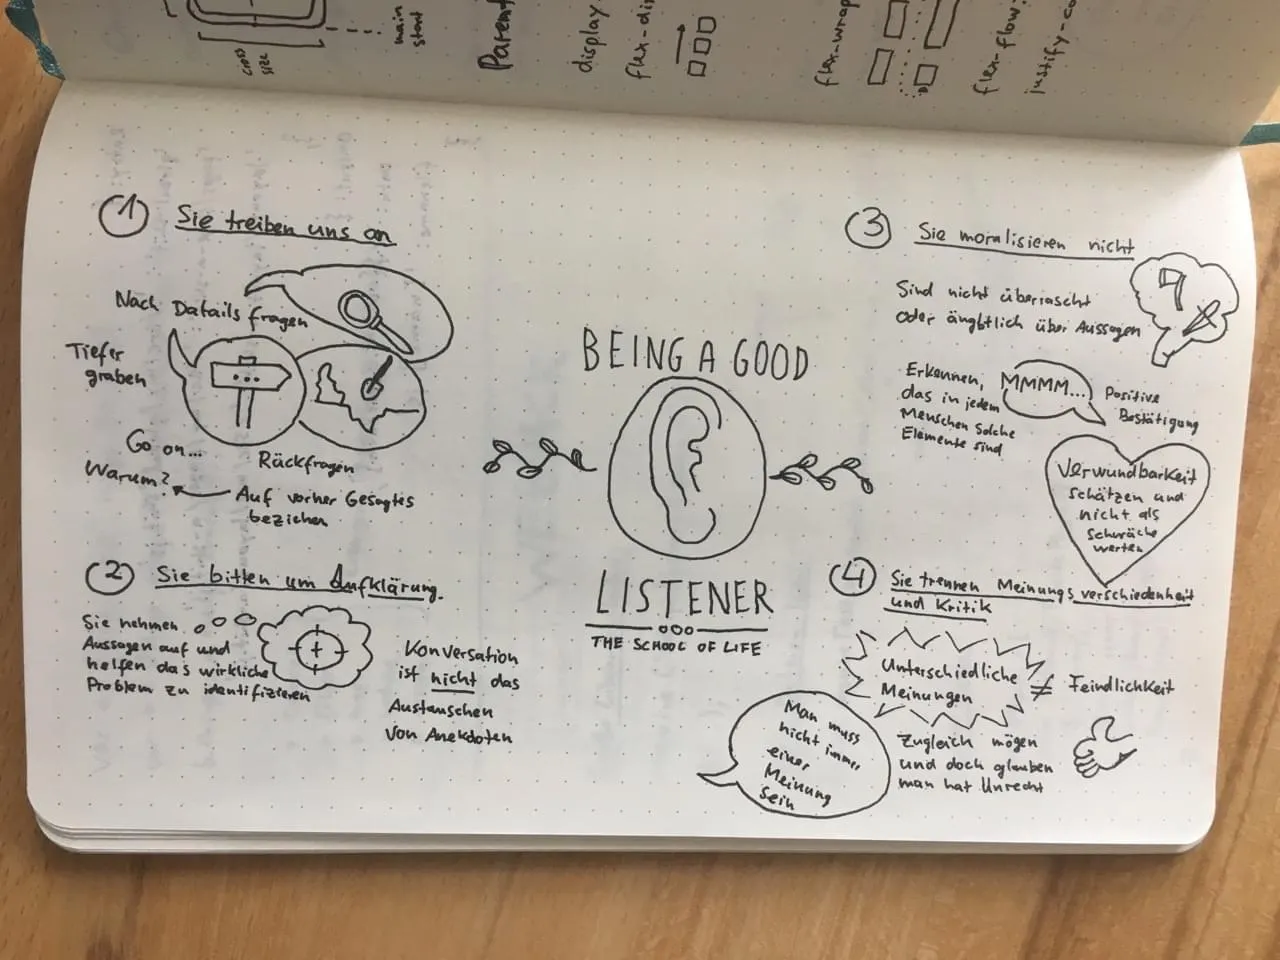 main
start
cross
size
Parent
display
flex-di
flex-wrap
flex-flow:
justify-co
1
Sie treiben uns an
Nach Datails fragen
Tiefer
graben
Go on...
Warum?
Rückfragen
Auf vorher Gesagtes
beziehen
2
Sie bitten um Aufklärung.
Sie nehmen
Aussagen auf und
helfen das wirkliche
Problem zu identifizieren
Konversation
ist nicht das
Austauschen
von Anekdoten
BEING A GOOD
LISTENER
THE SCHOOL OF LIFE
3
Sie moralisieren nicht
Sind nicht überrascht
oder ängbtlich über Aussagen
Erkennen,
das in jedem
Menschen solche
Elemente sind
MMMM...
Positive
Bestätigung
Verwundbarkeit
schätzen und
nicht als
Schwäche
werten
4
Sie trennen Meinungsverschiedenheit
und Kritik
Unterschiedliche
Meinungen
≠ Feindlichkeit
Man muss
nicht immer
einer
Meinung
sein
Zugleich mögen
und doch glauben
man hat Unrecht